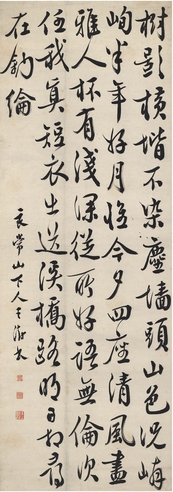 樹影橫堦不染塵墻頭山色况嶙
峋半年好月惟今夕四座清風盡
雅人杯有淺深從所好語無倫次
任我真短衣出送溪橋路明日相尋
在釣綸
衣常山下人王